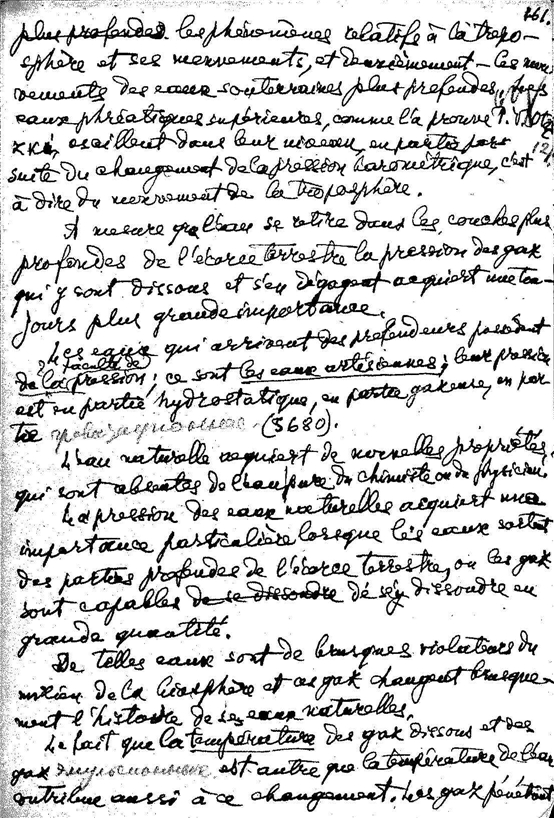 161.
plus profondes les phénomènes relatifs à la tropo-
sphère et ses mouvements, et deuxièmement – les mou
vements des eaux souterraines plus profondes,
eaux phréatiques supérieures, comme l'a prouvé P.
xxi, oscillent dans leur niveau, en partie par
suite du changement de la pression barométrique, c'est
à dire du mouvement de la troposphère.
A mesure que l'eau se retire dans les couches plus
profondes de l'écorce terrestre la pression des gax
qui y sont dissous et s'en dégagent acquiert une tou-
jours plus grande importance.
Les eaux qui arrivent des profondeurs possèdent
? faculté de
de la pression; ce sont les eaux artésiennes; leur pression
est en partie hydrostatique, en partie gaxeuse, en par
tie (3680).
L'eau naturelle acquiert de nouvelles propriétés,
qui sont absentes de l'eau pure du chimiste ou du physicien.
La pression des eaux naturelles acquiert une
importance particulière lorsque les eaux sortent
des parties profondes de l'écorce terrestre, ou les gax
sont capables de se dissoudre de s'éy dissoudre en
grande quantité.
De telles eaux sont de brusques violateurs du
milieu de la biosphère et ces gax changent brusque-
ment l'histoire de ses eaux naturelles.
Le fait que la température des gax dissous et des
gax est autre que la température de l'eau
contribue aussi à ce changement. Les gax pénétrant